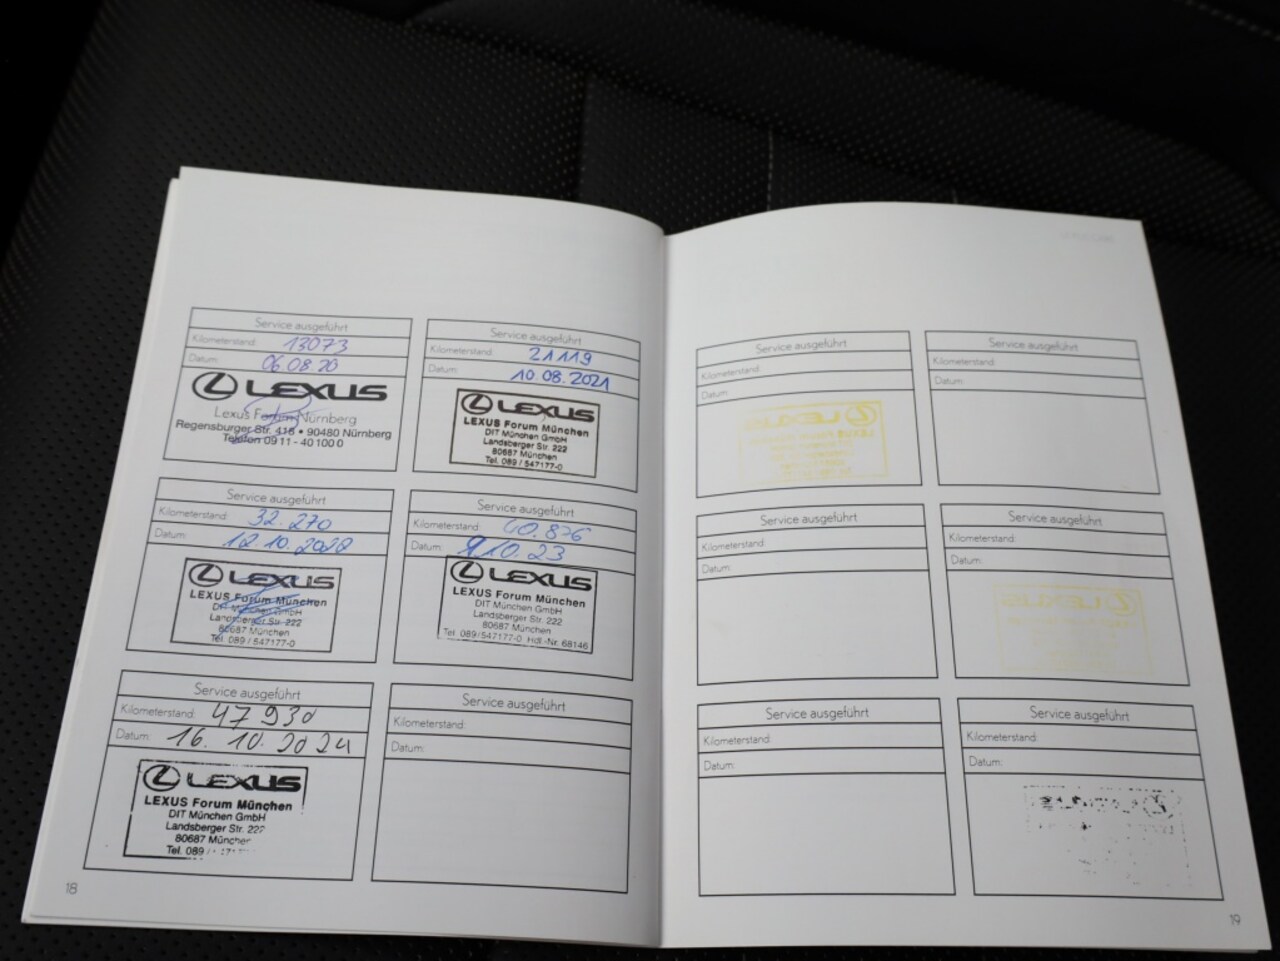 Service ausgeführt
Kilometerstand: 13073
Datum: 06.08.20
LEXUS
Lexus Forum Nürnberg
Regensburger Str. 418 • 90480 Nürnberg
Telefon 09 11 - 40 100 0
Service ausgeführt
Kilometerstand: 21119
Datum: 10.08.2021
LEXUS
LEXUS Forum München
DIT München GmbH
Landsberger Str. 222
80687 München
Tel. 089 / 547177-0
Service ausgeführt
Kilometerstand: 32.270
Datum: 12.10.2022
LEXUS
LEXUS Forum München
DIT München GmbH
Landsberger Str. 222
80687 München
Tel. 089 / 547177-0
Service ausgeführt
Kilometerstand: 40.876
Datum: 9.10.23
LEXUS
LEXUS Forum München
DIT München GmbH
Landsberger Str. 222
80687 München
Tel. 089/547177-0 Hdl.-Nr. 68146
Service ausgeführt
Kilometerstand: 47930
Datum: 16.10.2024
LEXUS
LEXUS Forum München
DIT München GmbH
Landsberger Str. 222
80687 München
Tel. 089
Service ausgeführt
Kilometerstand:
Datum:
18
Service ausgeführt
Kilometerstand:
Datum:
Service ausgeführt
Kilometerstand:
Datum:
Service ausgeführt
Kilometerstand:
Datum:
Service ausgeführt
Kilometerstand:
Datum:
Service ausgeführt
Kilometerstand:
Datum:
Service ausgeführt
Kilometerstand:
Datum:
19